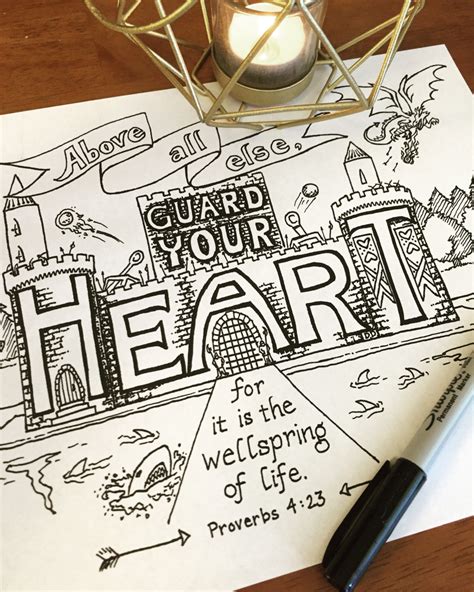 Above all else,
GUARD
YOUR
HEART
for
it is the
wellspring
of life.
Proverbs 4:23
Sharpie